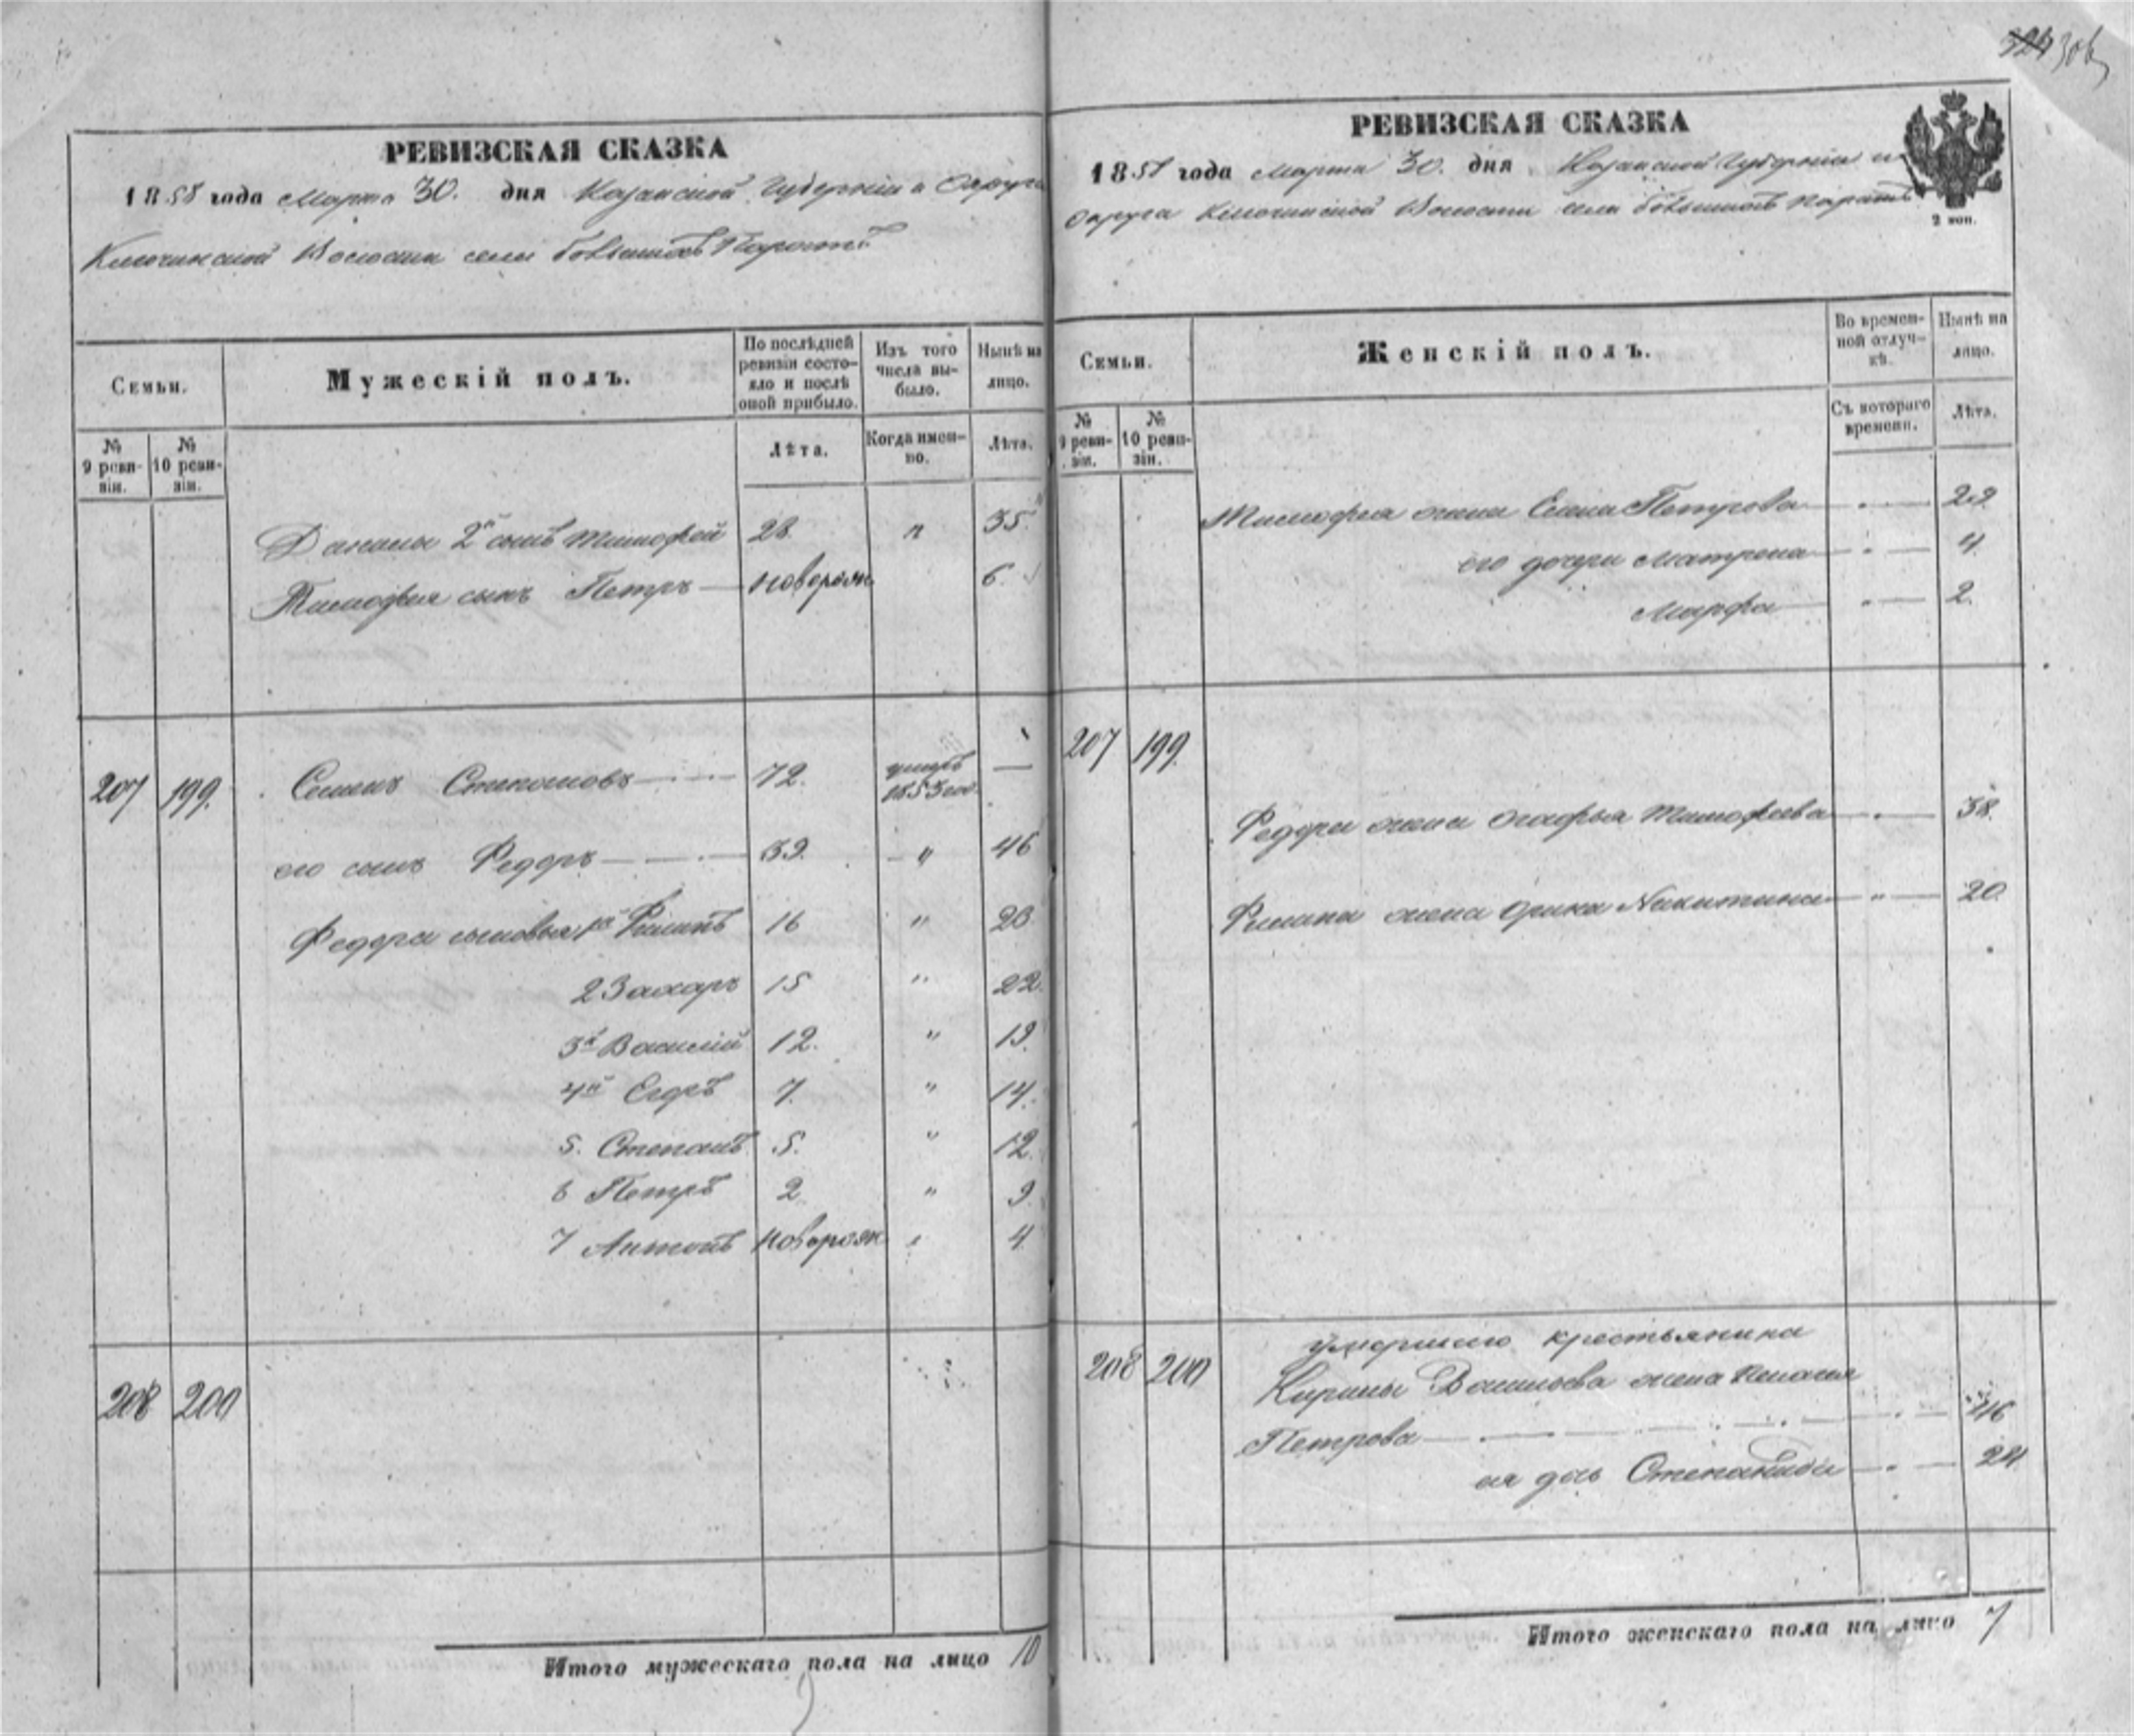 306
РЕВИЗСКАЯ СКАЗКА
1858 года Марта 30. дня Казанской Губернiи и Округа
Ключинской Волости села большихъ
Семьи.
Мужескiй полъ.
По послѣдней ревизiи состояло и послѣ оной прибыло.
Изъ того числа выбыло.
Нынѣ на лицо.
№ 9 ревизiи.
№ 10 ревизiи.
Лѣта.
Когда именно.
Лѣта.
Данилы 2й сынъ Тимофей 28 " 35
Тимофея сынъ Петръ — новорож 6.
207 199. Семенъ Степановъ — 72. умеръ 1853 год. —
его сынъ Федоръ — 39. " 46
Федора сыновья 1й Филипъ 16 " 23
2 Захаръ 15 " 22.
3й Василiй 12. " 19.
4й Егоръ 7. " 14.
5. Степанъ 5. " 12.
6 Петръ 2 " 9.
7 Антонъ новорож " 4
208 200
Итого мужескаго пола на лицо 10
РЕВИЗСКАЯ СКАЗКА
1858 года Марта 30. дня Казанской Губернiи и
Округа Ключинской Волости села большихъ
2 коп.
Семьи.
Женскiй полъ.
Во временной отлучкѣ.
Нынѣ на лицо.
№ 9 ревизiи.
№ 10 ревизiи.
Съ котораго времени.
Лѣта.
Тимофея жена Елена Петрова — " — 29
его дочери Матрена — " — 4
Марфа — " — 2.
207 199.
Федора жена Агафья Тимофеева — " — 38.
Филипа жена Орина Никитина — " — 20.
208 200 умершаго крестьянина
Кирилы Васильева жена Пелагея
Петрова — " — 46
ея дочь Степанида — " — 24
Итого женскаго пола на лицо 7